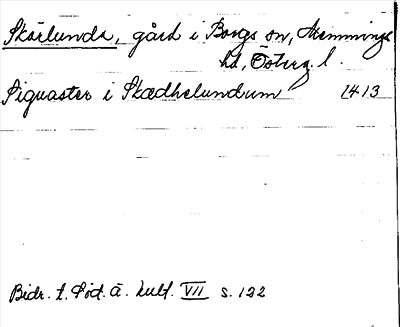 Skärlunda, gård i Borgs sn, Memmings
hd, Österg. l.
Siguaster i Skædhelundum 1413
Bidr. t. Söd. Ä. kult. VII s. 122